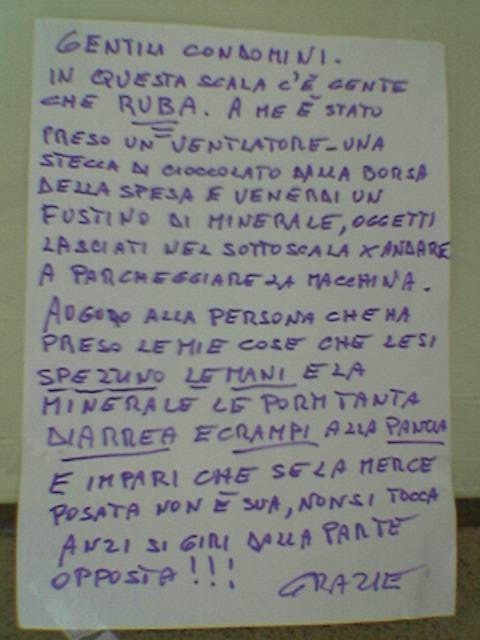 GENTILI CONDOMINI.
IN QUESTA SCALA C'È GENTE
CHE RUBA. A ME È STATO
PRESO UN VENTILATORE - UNA
STECCA DI CIOCCOLATO DALLA BORSA
DELLA SPESA E VENERDI UN
FUSTINO DI MINERALE, OGGETTI
LASCIATI NEL SOTTOSCALA X ANDARE
A PARCHEGGIARE LA MACCHINA.
AUGURO ALLA PERSONA CHE HA
PRESO LE MIE COSE CHE LE SI
SPEZZINO LE MANI E LA
MINERALE LE PORTI TANTA
DIARREA E CRAMPI ALLA PANCIA
E IMPARI CHE SE LA MERCE
POSATA NON È SUA, NON SI TOCCA
ANZI SI GIRI DALLA PARTE
OPPOSTA!!! GRAZIE